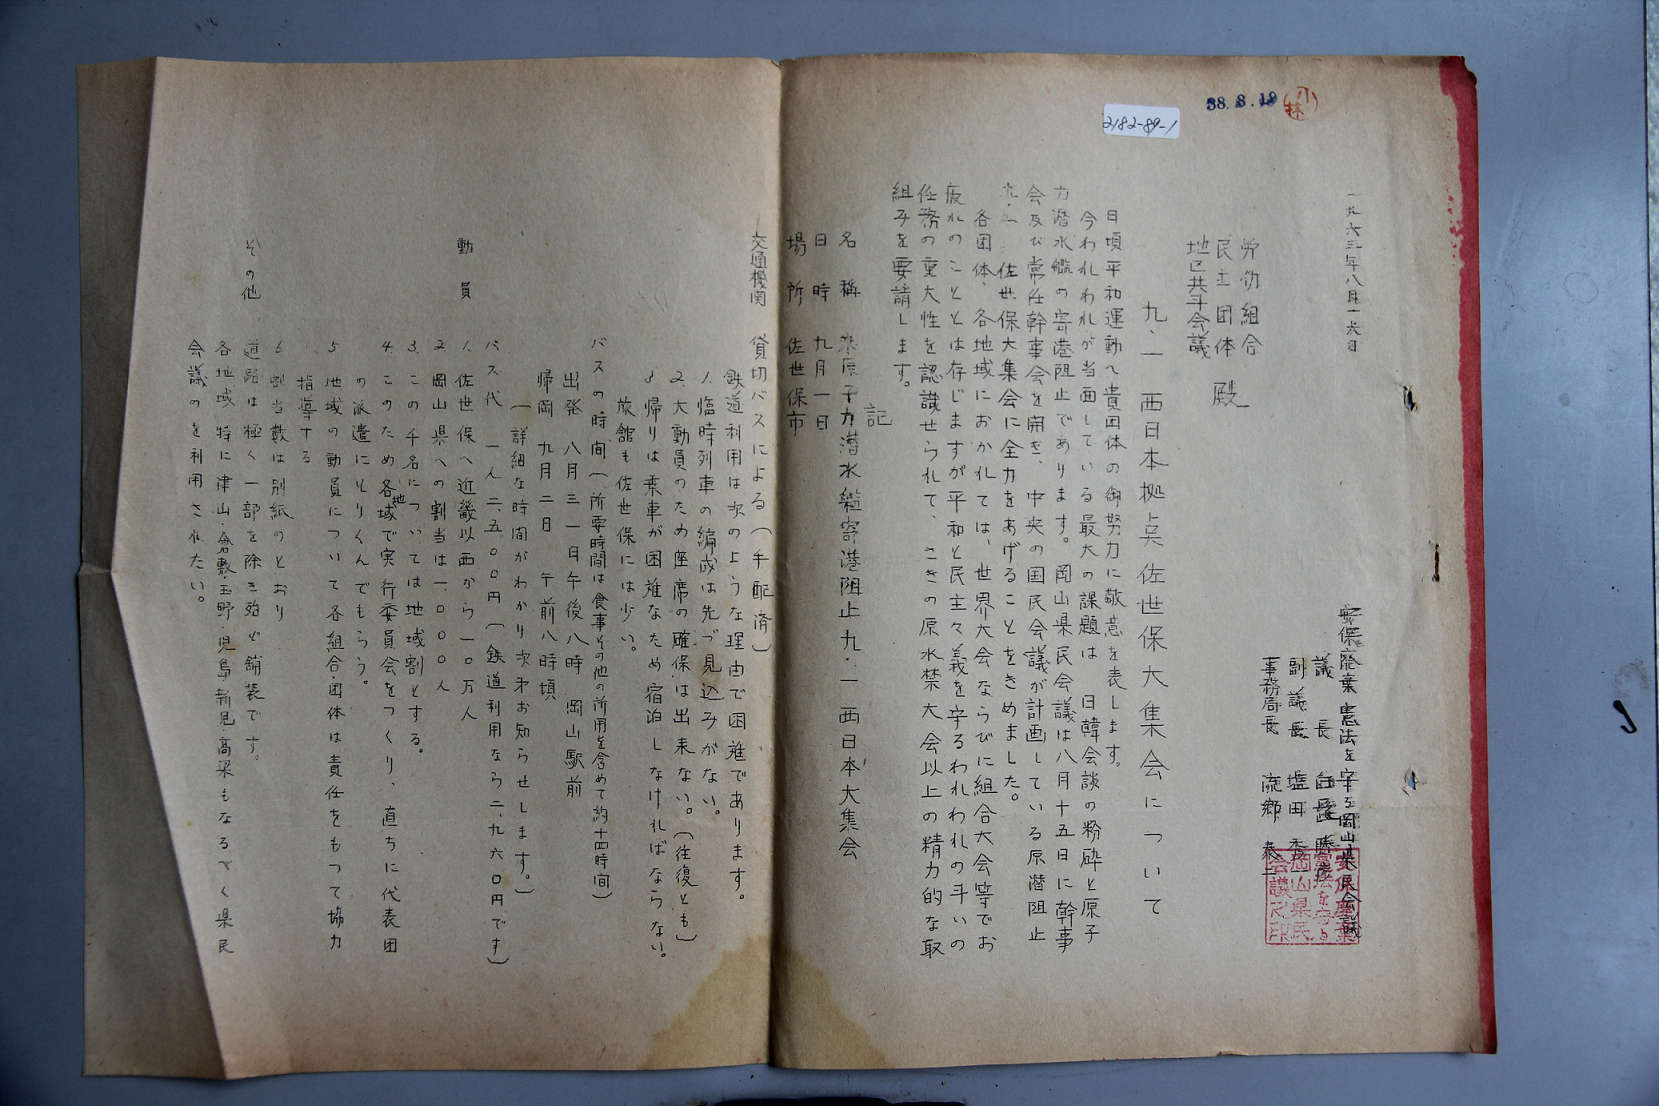 38.8.19
小林
2182-89-1
一九六三年八月一六日
安保廃棄憲法を守る岡山県民会議
議長
副議長 塩田
事務局長 流郷
安保廃棄憲法を守る岡山県民会議之印
労仂組合
民主団体 殿
地区共斗会議
九・一 西日本拠点佐世保大集会について
日頃平和運動へ貴団体の御努力に敬意を表します。
今われわれが当面している最大の課題は 日韓会談の粉砕と原子
力潜水艦の寄港阻止であります。岡山県民会議は八月十五日に幹事
会及び常任幹事会を開き、中央の国民会議が計画している原潜阻止
九・一 佐世保大集会に全力をあげることをきめました。
各団体、各地域におかれては、世界大会ならびに組合大会等でお
疲れのこととは存じますが平和と民主々義を守るわれわれの斗いの
任務の重大性を認識せられて、さきの原水禁大会以上の精力的な取
組みを要請します。
記
名称 米原子力潜水艦寄港阻止九・一西日本大集会
日時 九月一日
場所 佐世保市
交通機関 貸切バスによる(手配済)
鉄道利用は次のような理由で困難であります。
1. 臨時列車の編成は先づ見込みがない。
2. 大動員のため座席の確保は出来ない。(往復とも)
3 帰りは乗車が困難なため宿泊しなければならない。
旅館も佐世保には少い。
バスの時間(所要時間は食事その他の所用を含めて約十四時間)
出発 八月三一日午後八時 岡山駅前
帰岡 九月二日 午前八時頃
(詳細な時間がわかり次第お知らせします。)
バス代 一人二、五〇〇円(鉄道利用なら二、九六〇円です)
動員 1. 佐世保へ近畿以西から一〇万人
2. 岡山県への割当は一、〇〇〇人
3. この千名については地域割とする。
4. このため各地域で実行委員会をつくり、直ちに代表団
の派遣にとりくんでもらう。
5 地域の動員について各組合・団体は責任をもつて協力
指導する
6 割当数は別紙のとおり
その他 道路は極く一部を除き殆ど舗装です。
各地域 特に津山・倉敷・玉野・児島・新見・高梁もなるべく県民
会議のを利用されたい。